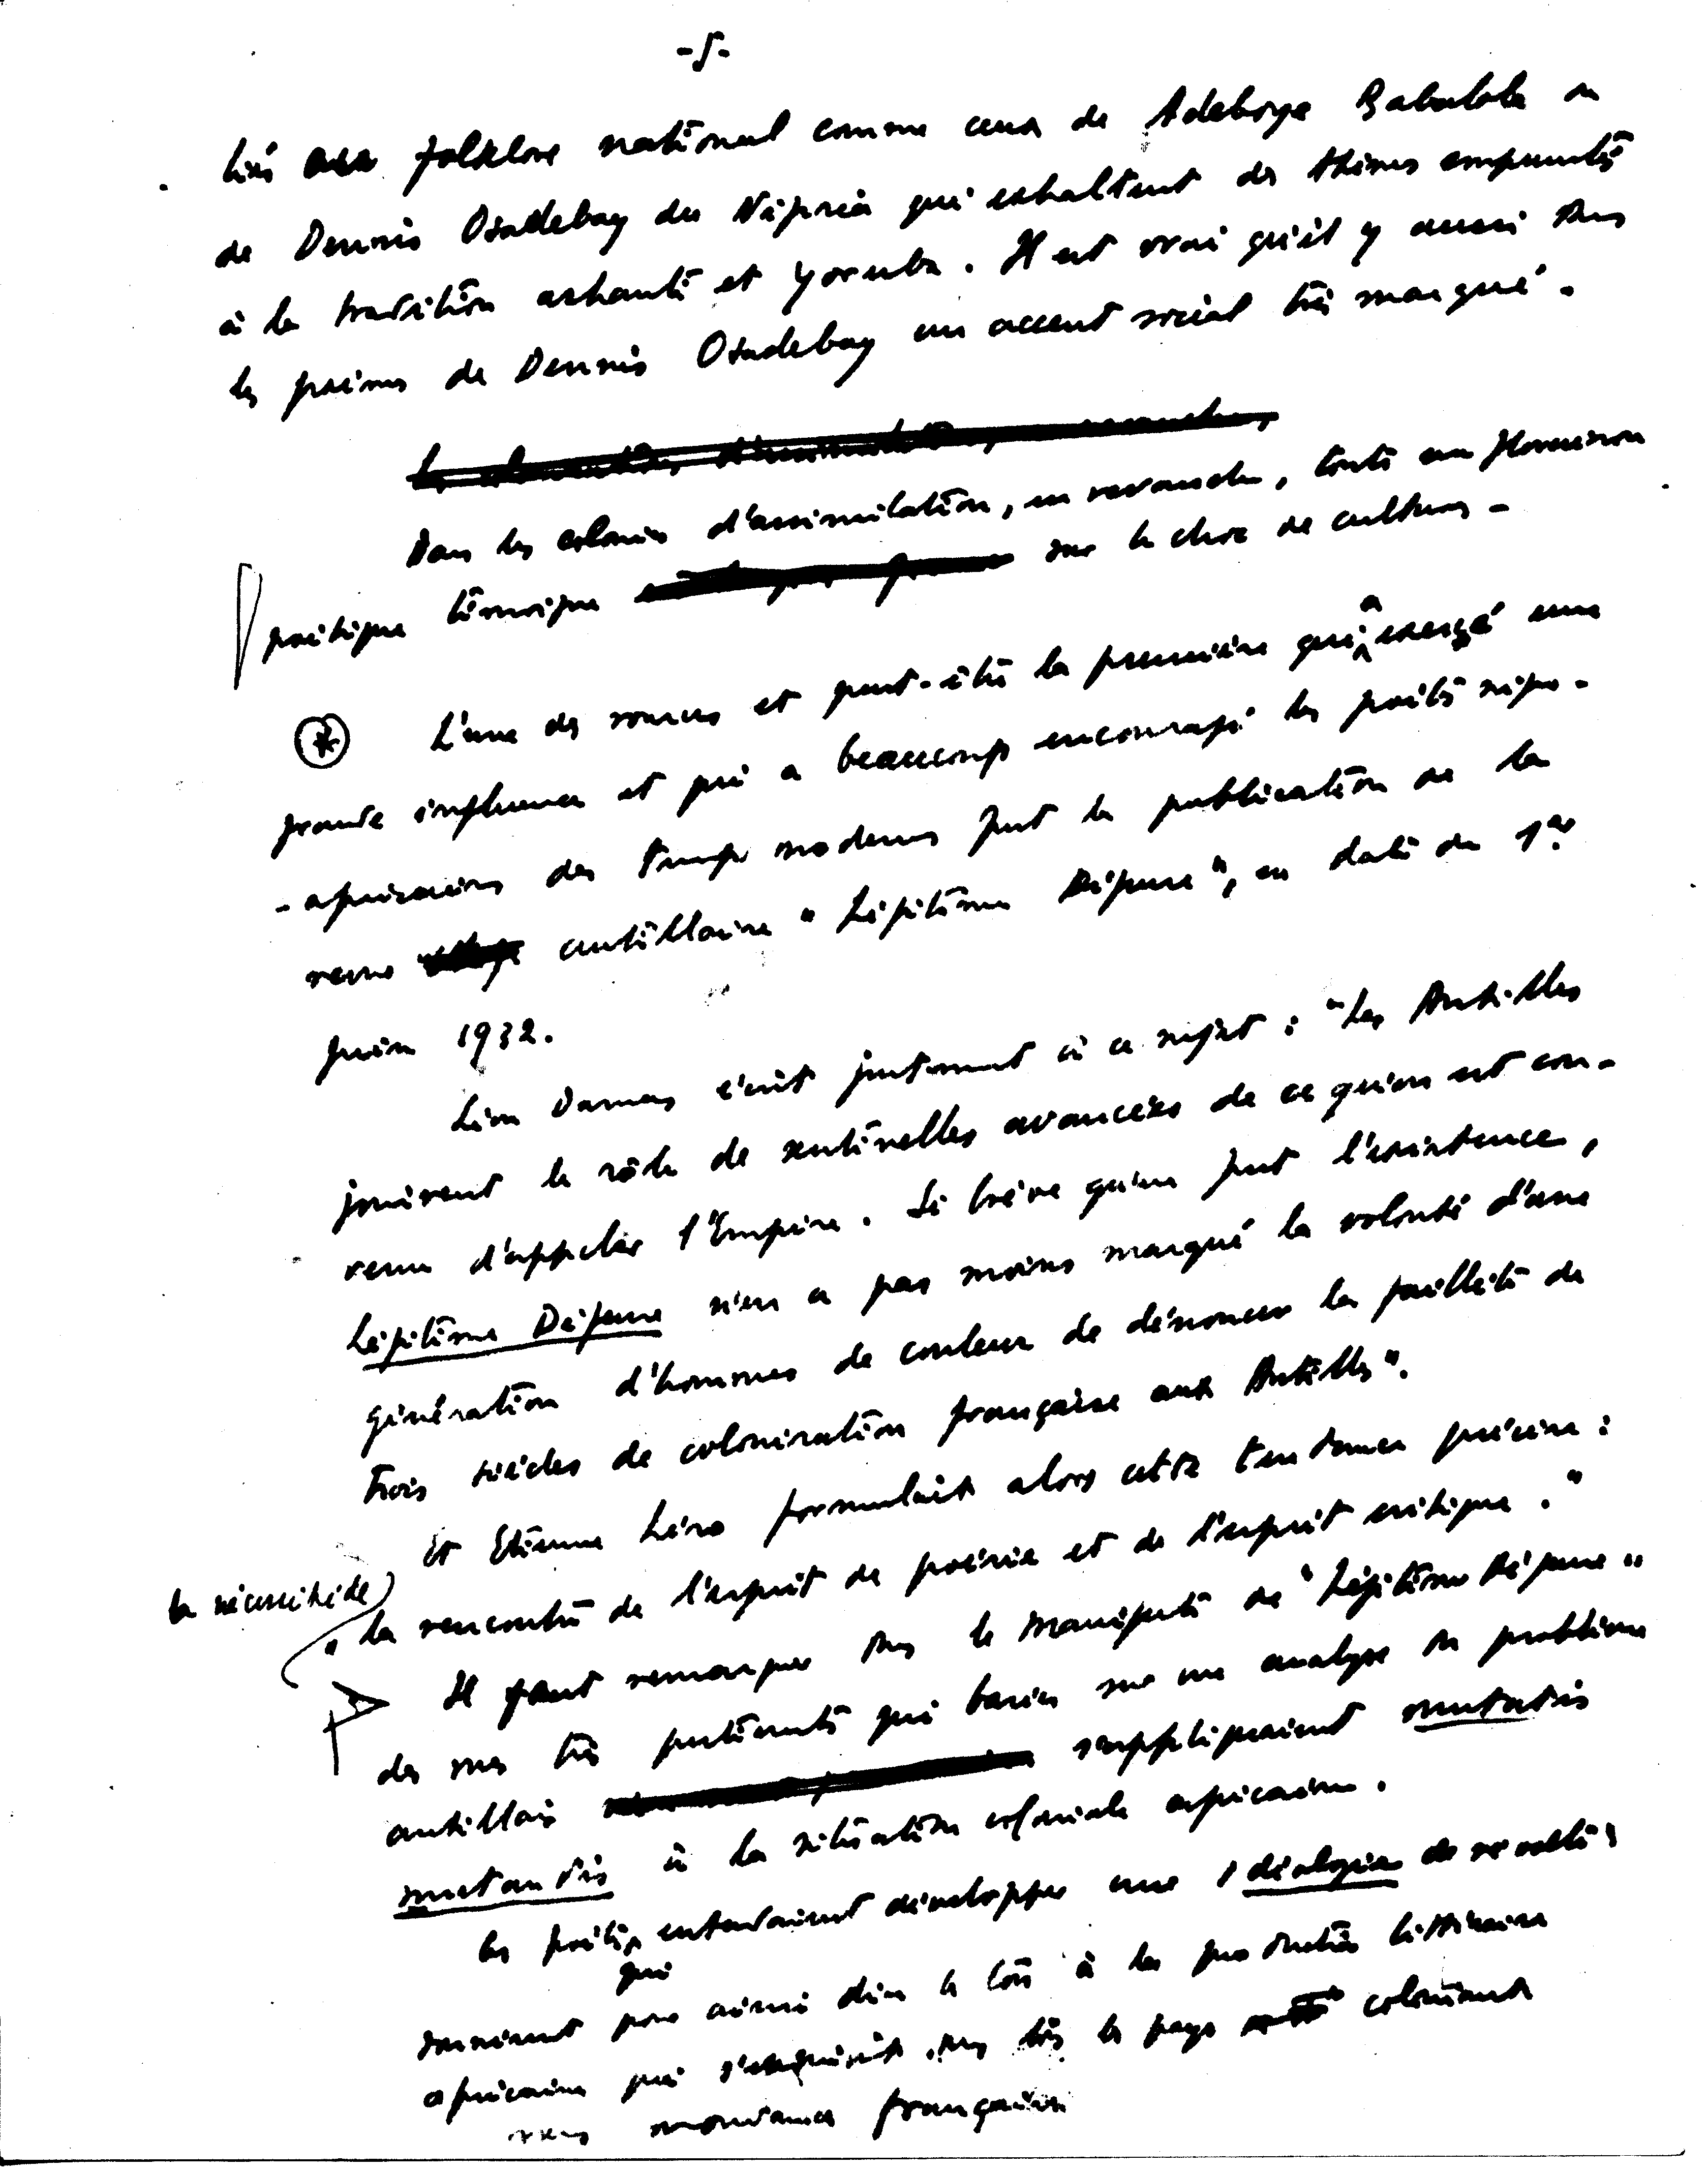 -5-
liés au folklore national comme ceux de Adeboye Babalola ou
de Dennis Osadebay du Nigéria qui exhaltent des thèmes empruntés
à la tradition ashanti et yoruba. Il est vrai qu'il y aussi dans
les poèmes de Dennis Osadebay un accent social très marqué.
Dans les colonies d'assimilation, en revanche, toute une floraison
poétique témoigne sur le choc de cultures -
L'une des sources et peut-être la première qui a exercé une
grande influence et qui a beaucoup encouragé les poètes négro-
-africains des temps modernes fut la publication de la
revue antillaise "Légitime Défense", en date du 1er
Juin 1932.
Léon Damas écrit justement à ce sujet : "Les Antilles
jouèrent le rôle de sentinelles avancées de ce qu'on est con-
venu d'appeler l'Empire. Si brève qu'en fut l'existence,
Légitime Défense n'en a pas moins marqué la volonté d'une
génération d'hommes de couleur de dénoncer la faillite de
trois siècles de colonisation française aux Antilles".
Et Etienne Léro formulait alors cette tendance précise :
la nécessité de
"la rencontre de l'esprit de poésie et de l'esprit critique."
Il faut remarquer dans le Manifeste de "Légitime Défense"
des vues très pertinentes qui basées sur une analyse du problème
antillais s'appliquaient mutatis
mutandis à la situation coloniale africaine.
les poètes entendaient développer une idéologie de révolte
qui
donnèrent pour ainsi dire le ton à la production littéraire
africaine qui dans les pays coloniaux
mouvance française